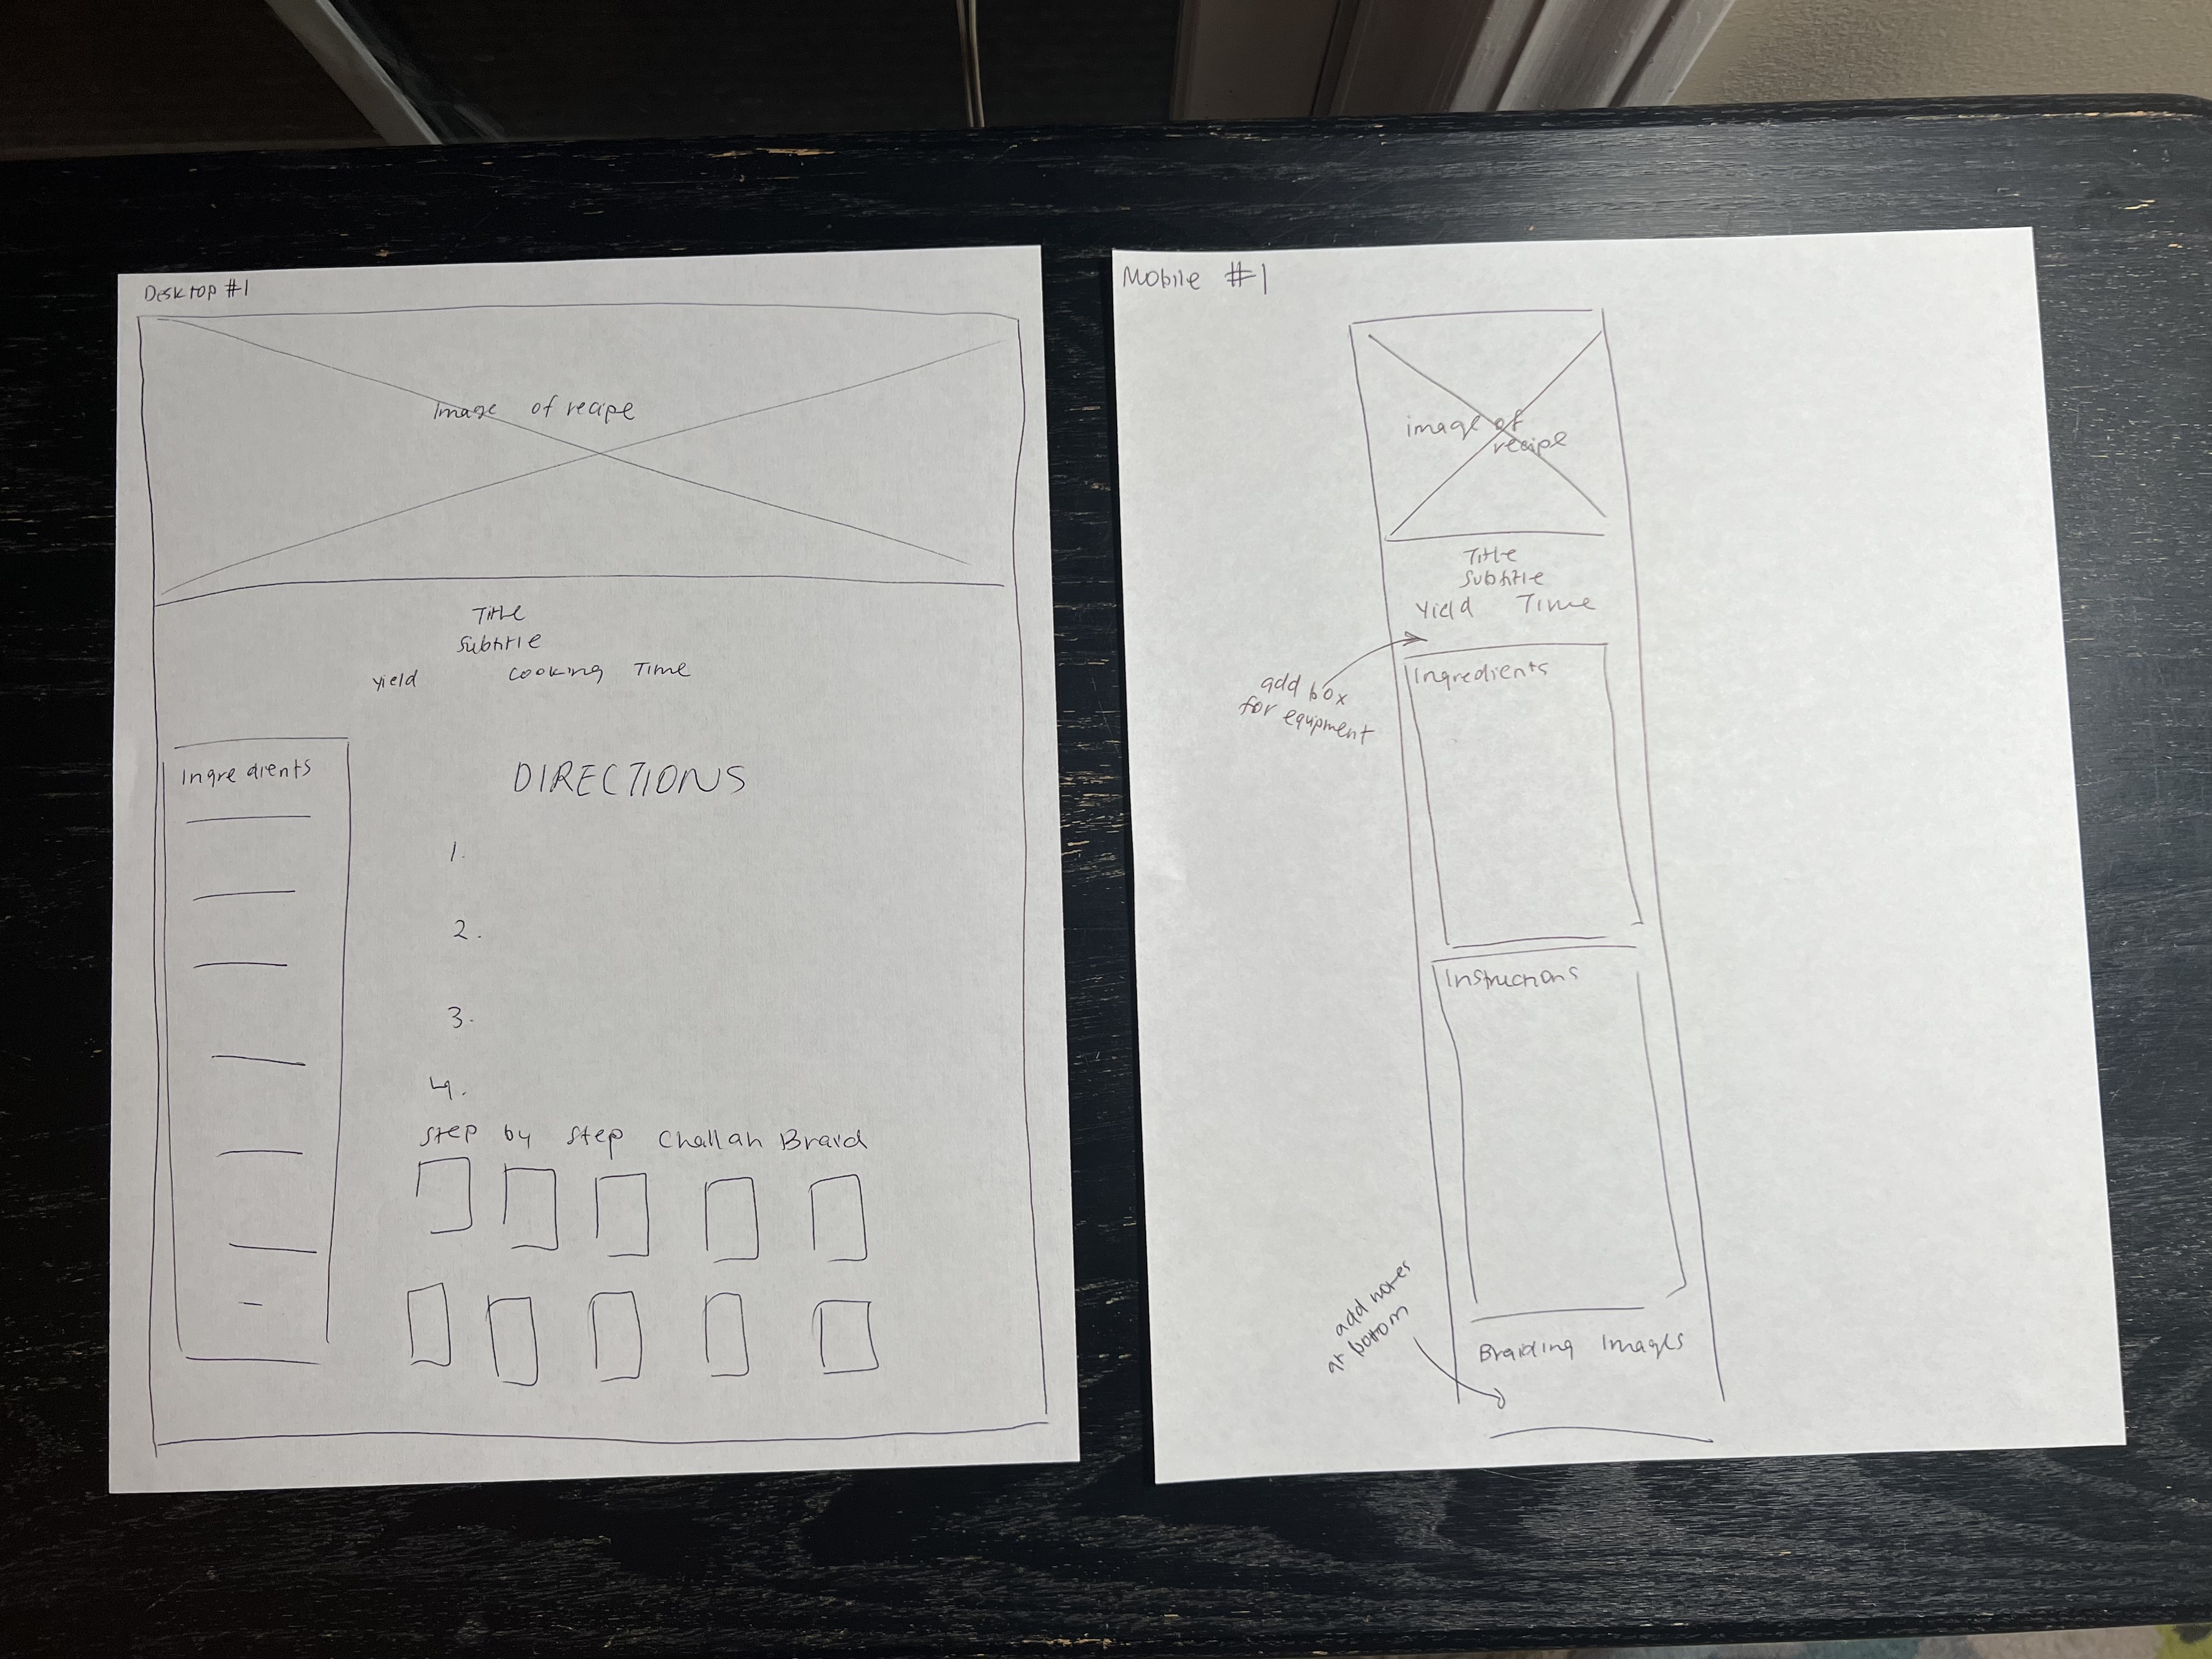 Desktop #1
Image of recipe
Title
Subtitle
Yield Cooking Time
Ingredients
DIRECTIONS
1.
2.
3.
4.
Step by Step Challah Braid
Mobile #1
image of
recipe
Title
Subtitle
Yield Time
add box
for equipment
Ingredients
Instructions
add notes
at bottom
Braiding Images